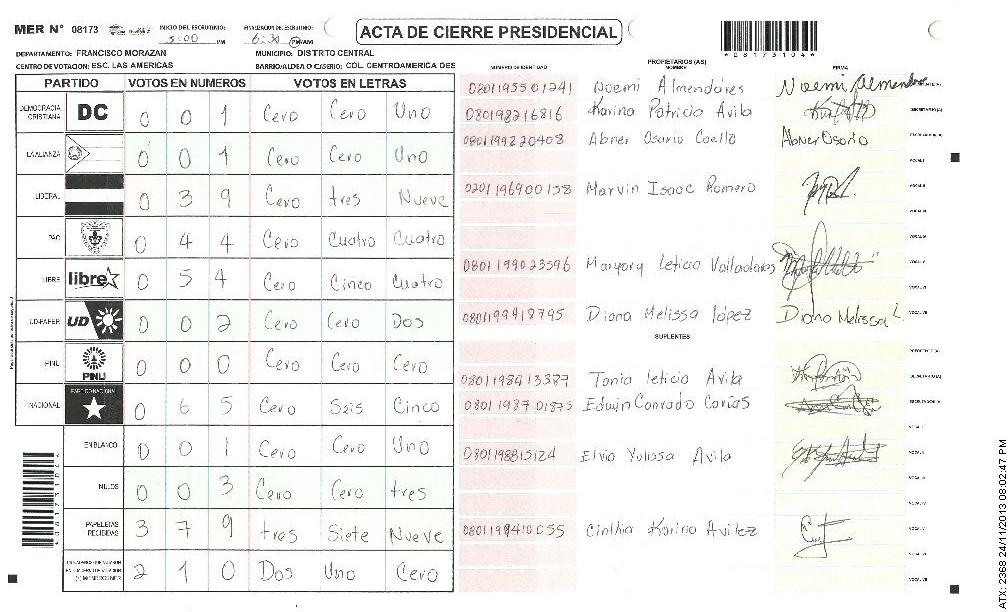 MER N° 08173 INICIO DEL ESCRUTINIO: 5:00 PM FINALIZACION DEL ESCRUTINIO: 6:30 PM/AM
ACTA DE CIERRE PRESIDENCIAL
081731046
DEPARTAMENTO: FRANCISCO MORAZAN MUNICIPIO: DISTRITO CENTRAL
CENTRO DE VOTACION: ESC. LAS AMERICAS BARRIO/ALDEA O CASERIO: COL. CENTROAMERICA OES
PARTIDO VOTOS EN NUMEROS VOTOS EN LETRAS
DEMOCRACIA CRISTIANA DC 0 0 1 Cero Cero Uno
LA ALIANZA 0 0 1 Cero Cero Uno
LIBERAL 0 3 9 Cero tres Nueve
PAC 0 4 4 Cero Cuatro Cuatro
LIBRE libre 0 5 4 Cero Cinco Cuatro
UD-FAPER UD 0 0 2 Cero Cero Dos
PINU PINU 0 0 0 Cero Cero Cero
NACIONAL PARTIDO NACIONAL 0 6 5 Cero Seis Cinco
EN BLANCO 0 0 1 Cero Cero Uno
NULOS 0 0 3 Cero Cero tres
PAPELETAS RECIBIDAS 3 7 9 tres Siete Nueve
2 1 0 Dos Uno Cero
PROPIETARIOS (AS)
NUMERO DE IDENTIDAD NOMBRE FIRMA
0801195501241 Noemi Almendares Noemi Almendares
080198216816 Karina Patricia Avila
0801199220408 Abner Osorio Coello Abner Osorio
0201196900158 Marvin Isaac Romero
0801199023596 Maryory Leticia Valladares
0801199418795 Diana Melissa López Diana Melissa L.
SUPLENTES
0801198413387 Tania leticia Avila
0801198701873 Edwin Conrado Carías
0801198815124 Elvia Yulissa Avila
0801199410055 Cinthia Karina Avilez
ATX: 2368 24/11/2013 08:02:47 PM